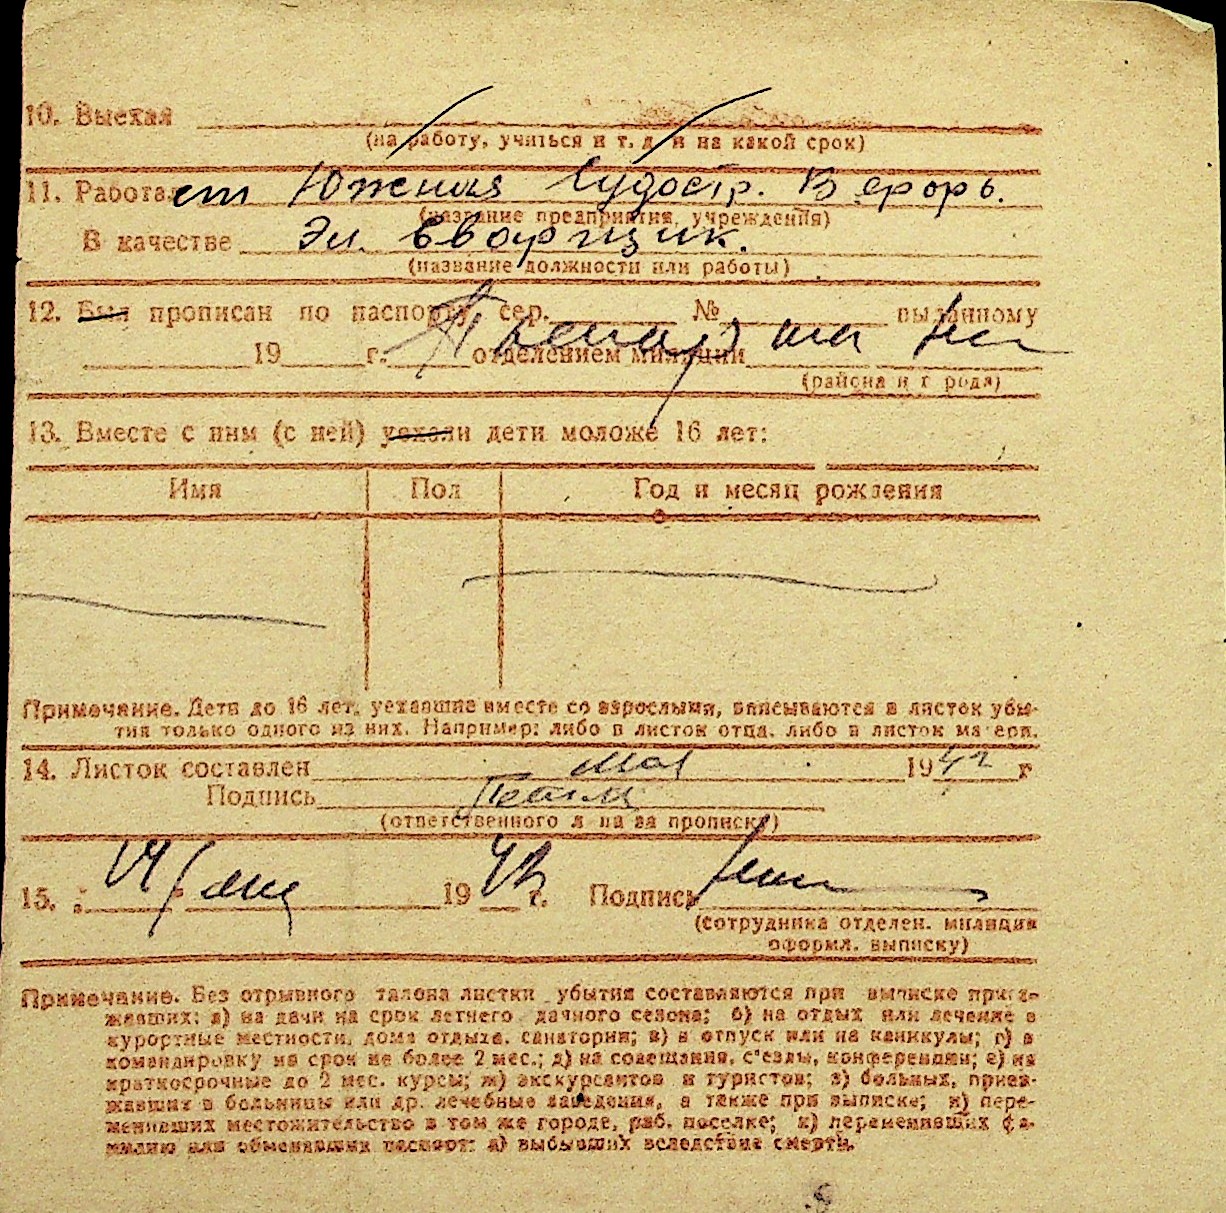 10. Выехал
(на работу, учиться и т. д. и на какой срок)
11. Работает Южная Судостр. Верфь.
(название предприятия, учреждения)
В качестве Эл. Сварщик.
(название должности или работы)
12. Был прописан по паспорту сер. № выданному
19 г. отделением милиции
(района и города)
13. Вместе с ним (с ней) уехали дети моложе 16 лет:
Имя Пол Год и месяц рождения
Примечание. Дети до 16 лет, уехавшие вместе со взрослыми, вписываются в листок убы-
тия только одного из них. Например: либо в листок отца, либо в листок матери.
14. Листок составлен мая 1942 г
Подпись
(ответственного лица за прописку)
15. „14" мая 1942 г. Подпись
(сотрудника отделен. милиции
оформл. выписку)
Примечание. Без отрывного талона листки убытия составляются при выписке приез-
жавших: а) на дачи на срок летнего дачного сезона; б) на отдых или лечение в
курортные местности, дома отдыха, санатории; в) в отпуск или на каникулы; г) в
командировку на срок не более 2 мес.; д) на совещания, с'езды, конференции; е) на
краткосрочные до 2 мес. курсы; ж) экскурсантов и туристов; з) больных, приез-
жавших в больницы или др. лечебные заведения, а также при выписке; и) пере-
менивших местожительство в том же городе, раб. поселке; к) переменивших фа-
милию или обменявших паспорт; л) выбывших вследствие смерти.